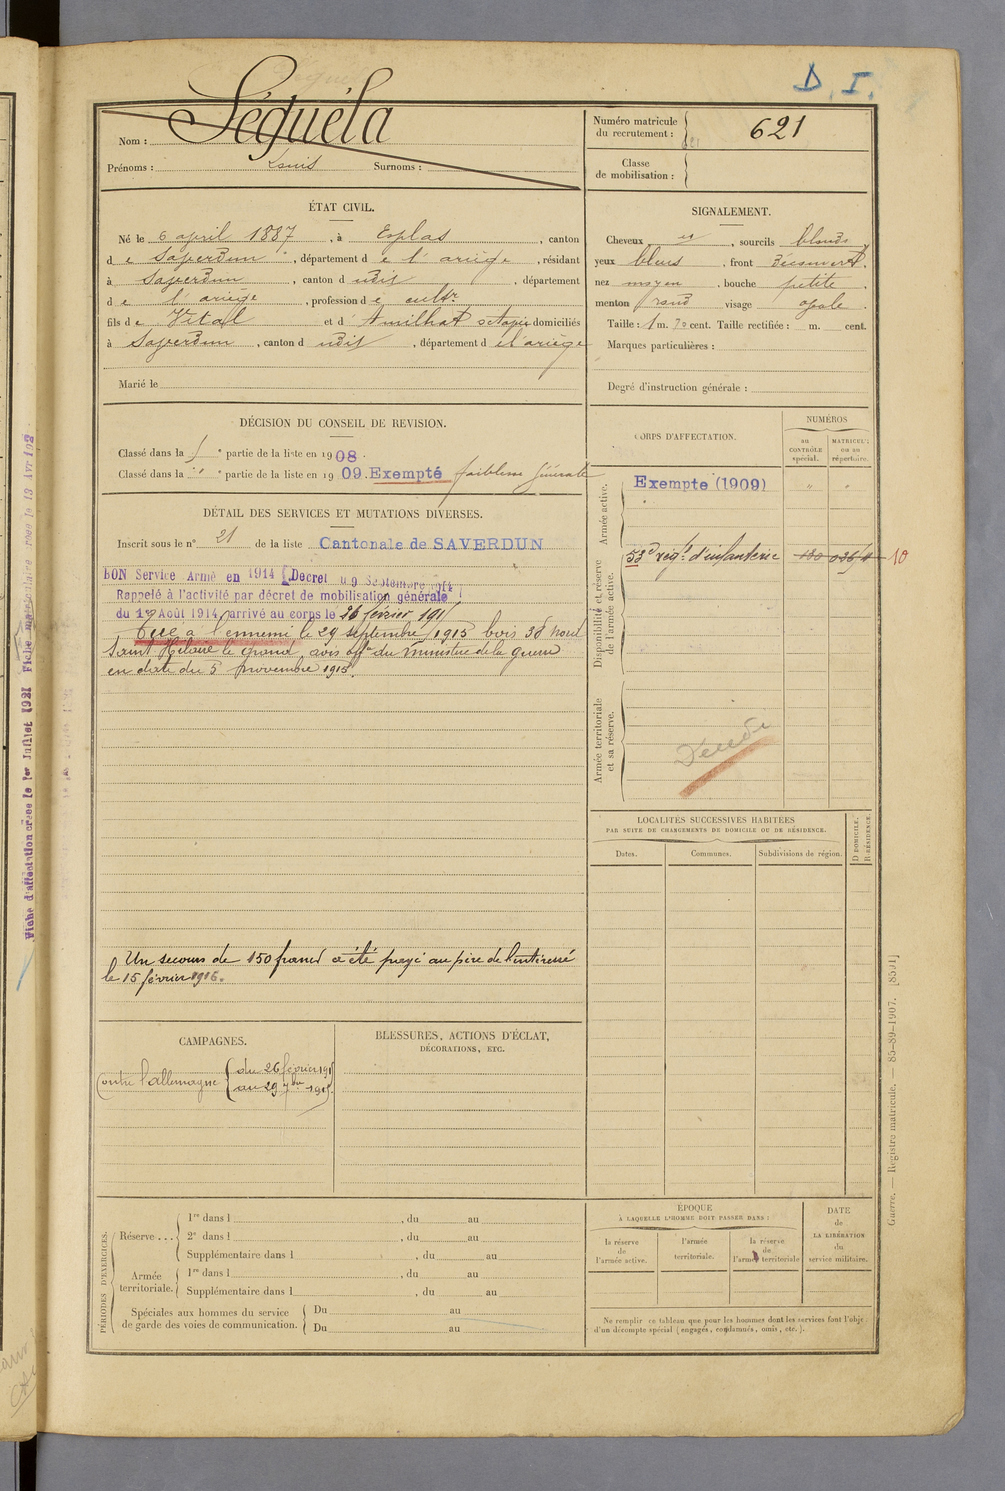 D. I.
Nom : Séguéla
Prénoms : Louis Surnoms :
Numéro matricule
du recrutement : 621
Classe
de mobilisation :
ÉTAT CIVIL.
Né le 6 april 1887, à Esplas, canton
de Saverdun, département de l'ariège, résidant
à Saverdun, canton d udit, département
de l'ariège, profession de cultr
fils de Vital et d'Amilhat octavie domiciliés
à Saverdun, canton d udit, département d el ariège
Marié le
SIGNALEMENT.
Cheveux et, sourcils blonds
yeux bleus, front découvert
nez moyen, bouche petite
menton rond visage ovale
Taille : 1 m. 70 cent. Taille rectifiée : m. cent.
Marques particulières :
Degré d'instruction générale :
DÉCISION DU CONSEIL DE REVISION.
Classé dans la e partie de la liste en 1908.
Classé dans la " e partie de la liste en 1909. Exempté faiblesse générale
DÉTAIL DES SERVICES ET MUTATIONS DIVERSES.
Inscrit sous le n° 21 de la liste Cantonale de SAVERDUN
BON Service Armé en 1914 (Décret du 9 Septembre 1914)
Rappelé à l'activité par décret de mobilisation générale
du 1er Août 1914, arrivé au corps le 26 février 191
Tué à l'ennemi le 29 septembre 1915 bois 38 nord
Saint Hilaire le grand, avis off. du ministre de la guerre
en date du 5 novembre 1915.
Un secours de 150 francs a été payé au père de l'intéressé
le 15 février 1916.
CORPS D'AFFECTATION.
NUMÉROS
au
CONTRÔLE
spécial.
MATRICULE
ou au
répertoire.
Armée active.
Exempte (1909) " "
Disponibilité et réserve
de l'armée active.
53e régt d'infanterie 10
Armée territoriale
et sa réserve.
LOCALITÉS SUCCESSIVES HABITÉES
PAR SUITE DE CHANGEMENTS DE DOMICILE OU DE RÉSIDENCE.
Dates.
Communes.
Subdivisions de région.
D DOMICILE.
R RÉSIDENCE.
CAMPAGNES.
Contre l'allemagne { du 26 février 1915
au 29 7bre 1915.
BLESSURES, ACTIONS D'ÉCLAT,
DÉCORATIONS, ETC.
PÉRIODES D'EXERCICES.
Réserve ... 1re dans l , du au
2e dans l , du au
Supplémentaire dans l , du au
Armée
territoriale. 1re dans l , du au
Supplémentaire dans l , du au
Spéciales aux hommes du service
de garde des voies de communication. Du au
Du au
ÉPOQUE
À LAQUELLE L'HOMME DOIT PASSER DANS :
la réserve
de
l'armée active.
l'armée
territoriale.
la réserve
de
l'armée territoriale
DATE
de
LA LIBÉRATION
du
service militaire.
Ne remplir ce tableau que pour les hommes dont les services font l'obje
d'un décompte spécial (engagés, condamnés, omis, etc.).
Guerre. — Registre matricule. — 85-89-1907. [8591]
Fiche d'affectation créée le 1er Juillet 1921 Fiche matriculaire